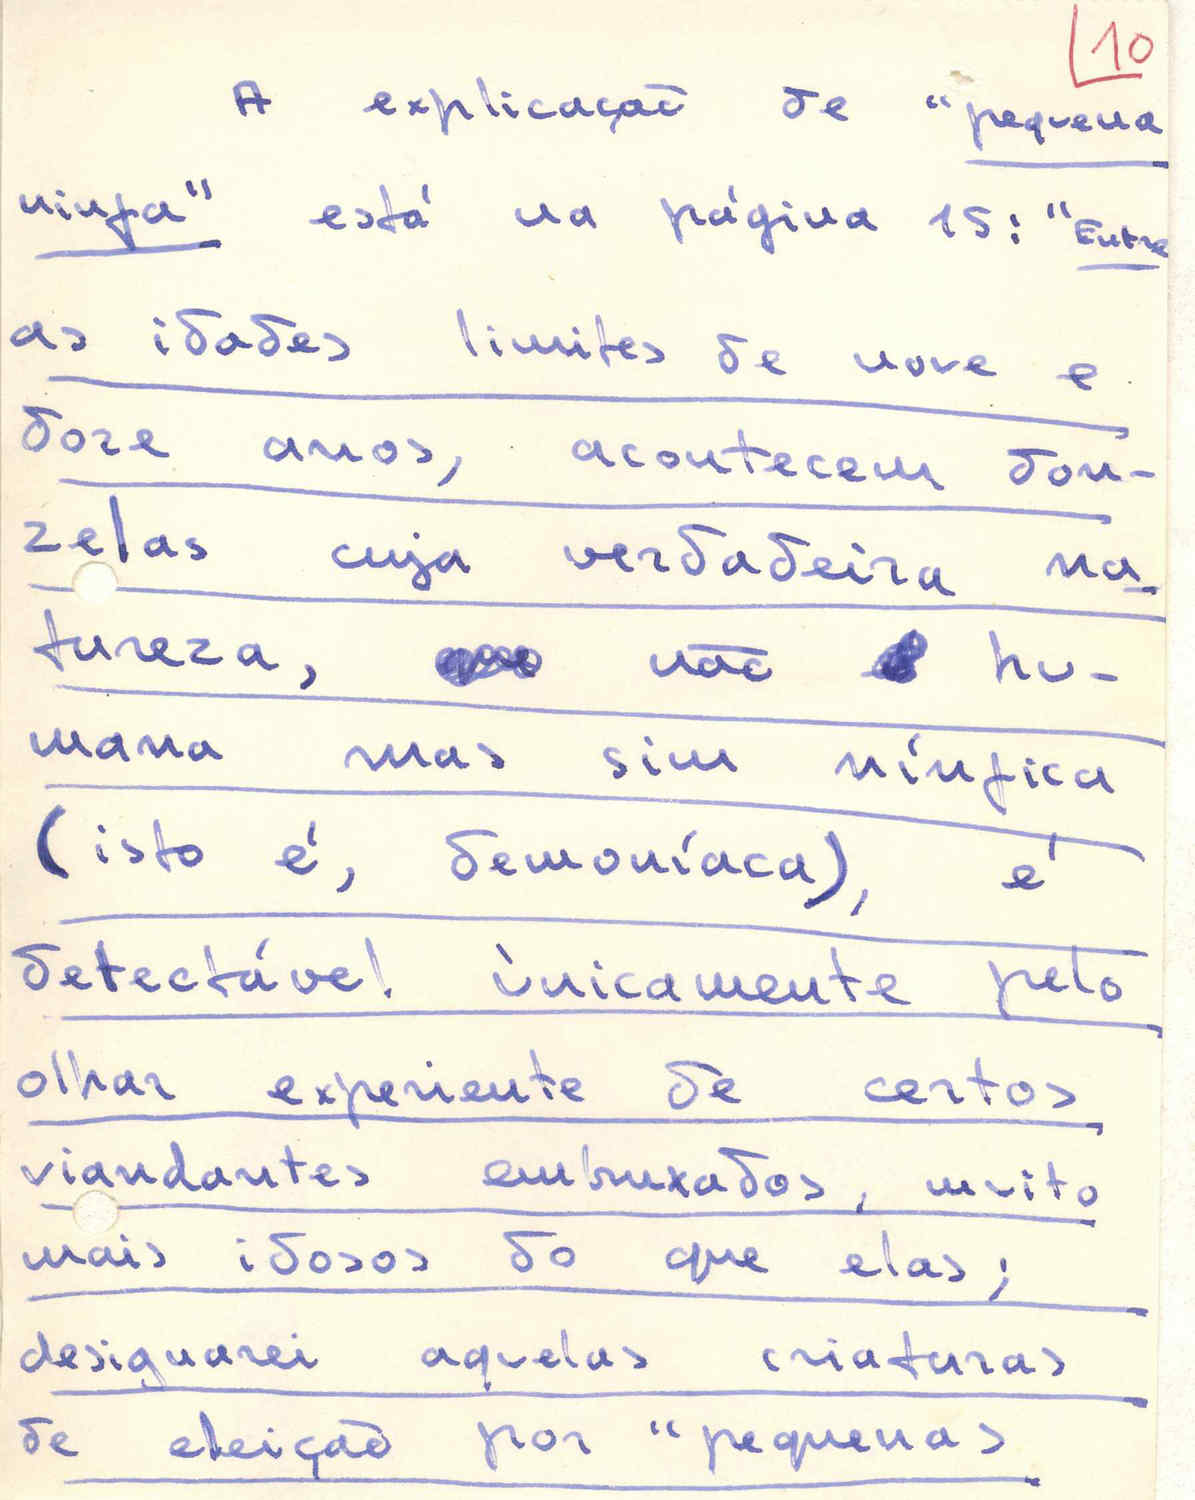 10
A explicação de "pequena
ninfa" está na página 15: "Entre
as idades limites de nove e
doze anos, acontecem don-
zelas cuja verdadeira na-
tureza, não hu-
mana mas sim nínfica
(isto é, demoníaca), é
detectável ùnicamente pelo
olhar experiente de certos
viandantes embruxados, muito
mais idosos do que elas;
designarei aquelas criaturas
de eleição por "pequenas